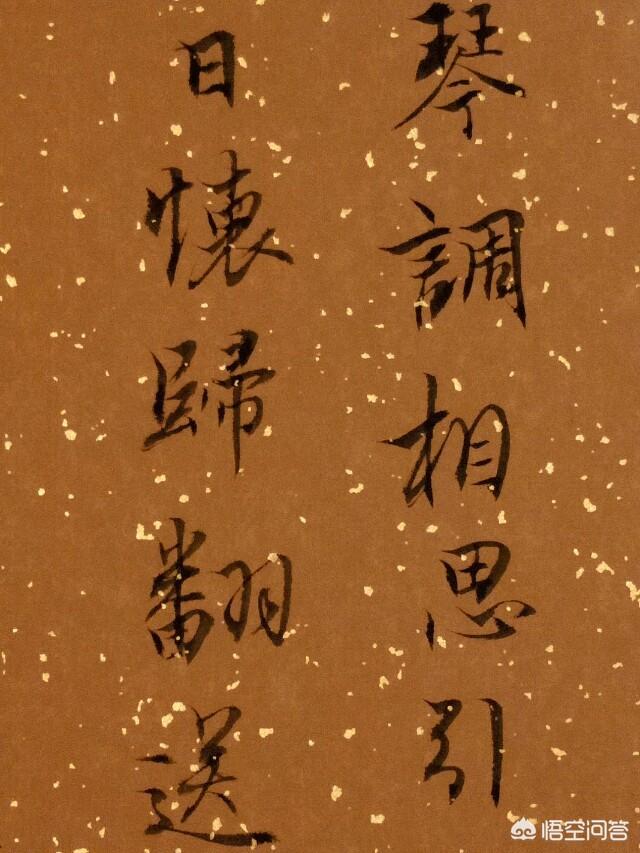 琴調相思引
日懷歸翻送
悟空问答